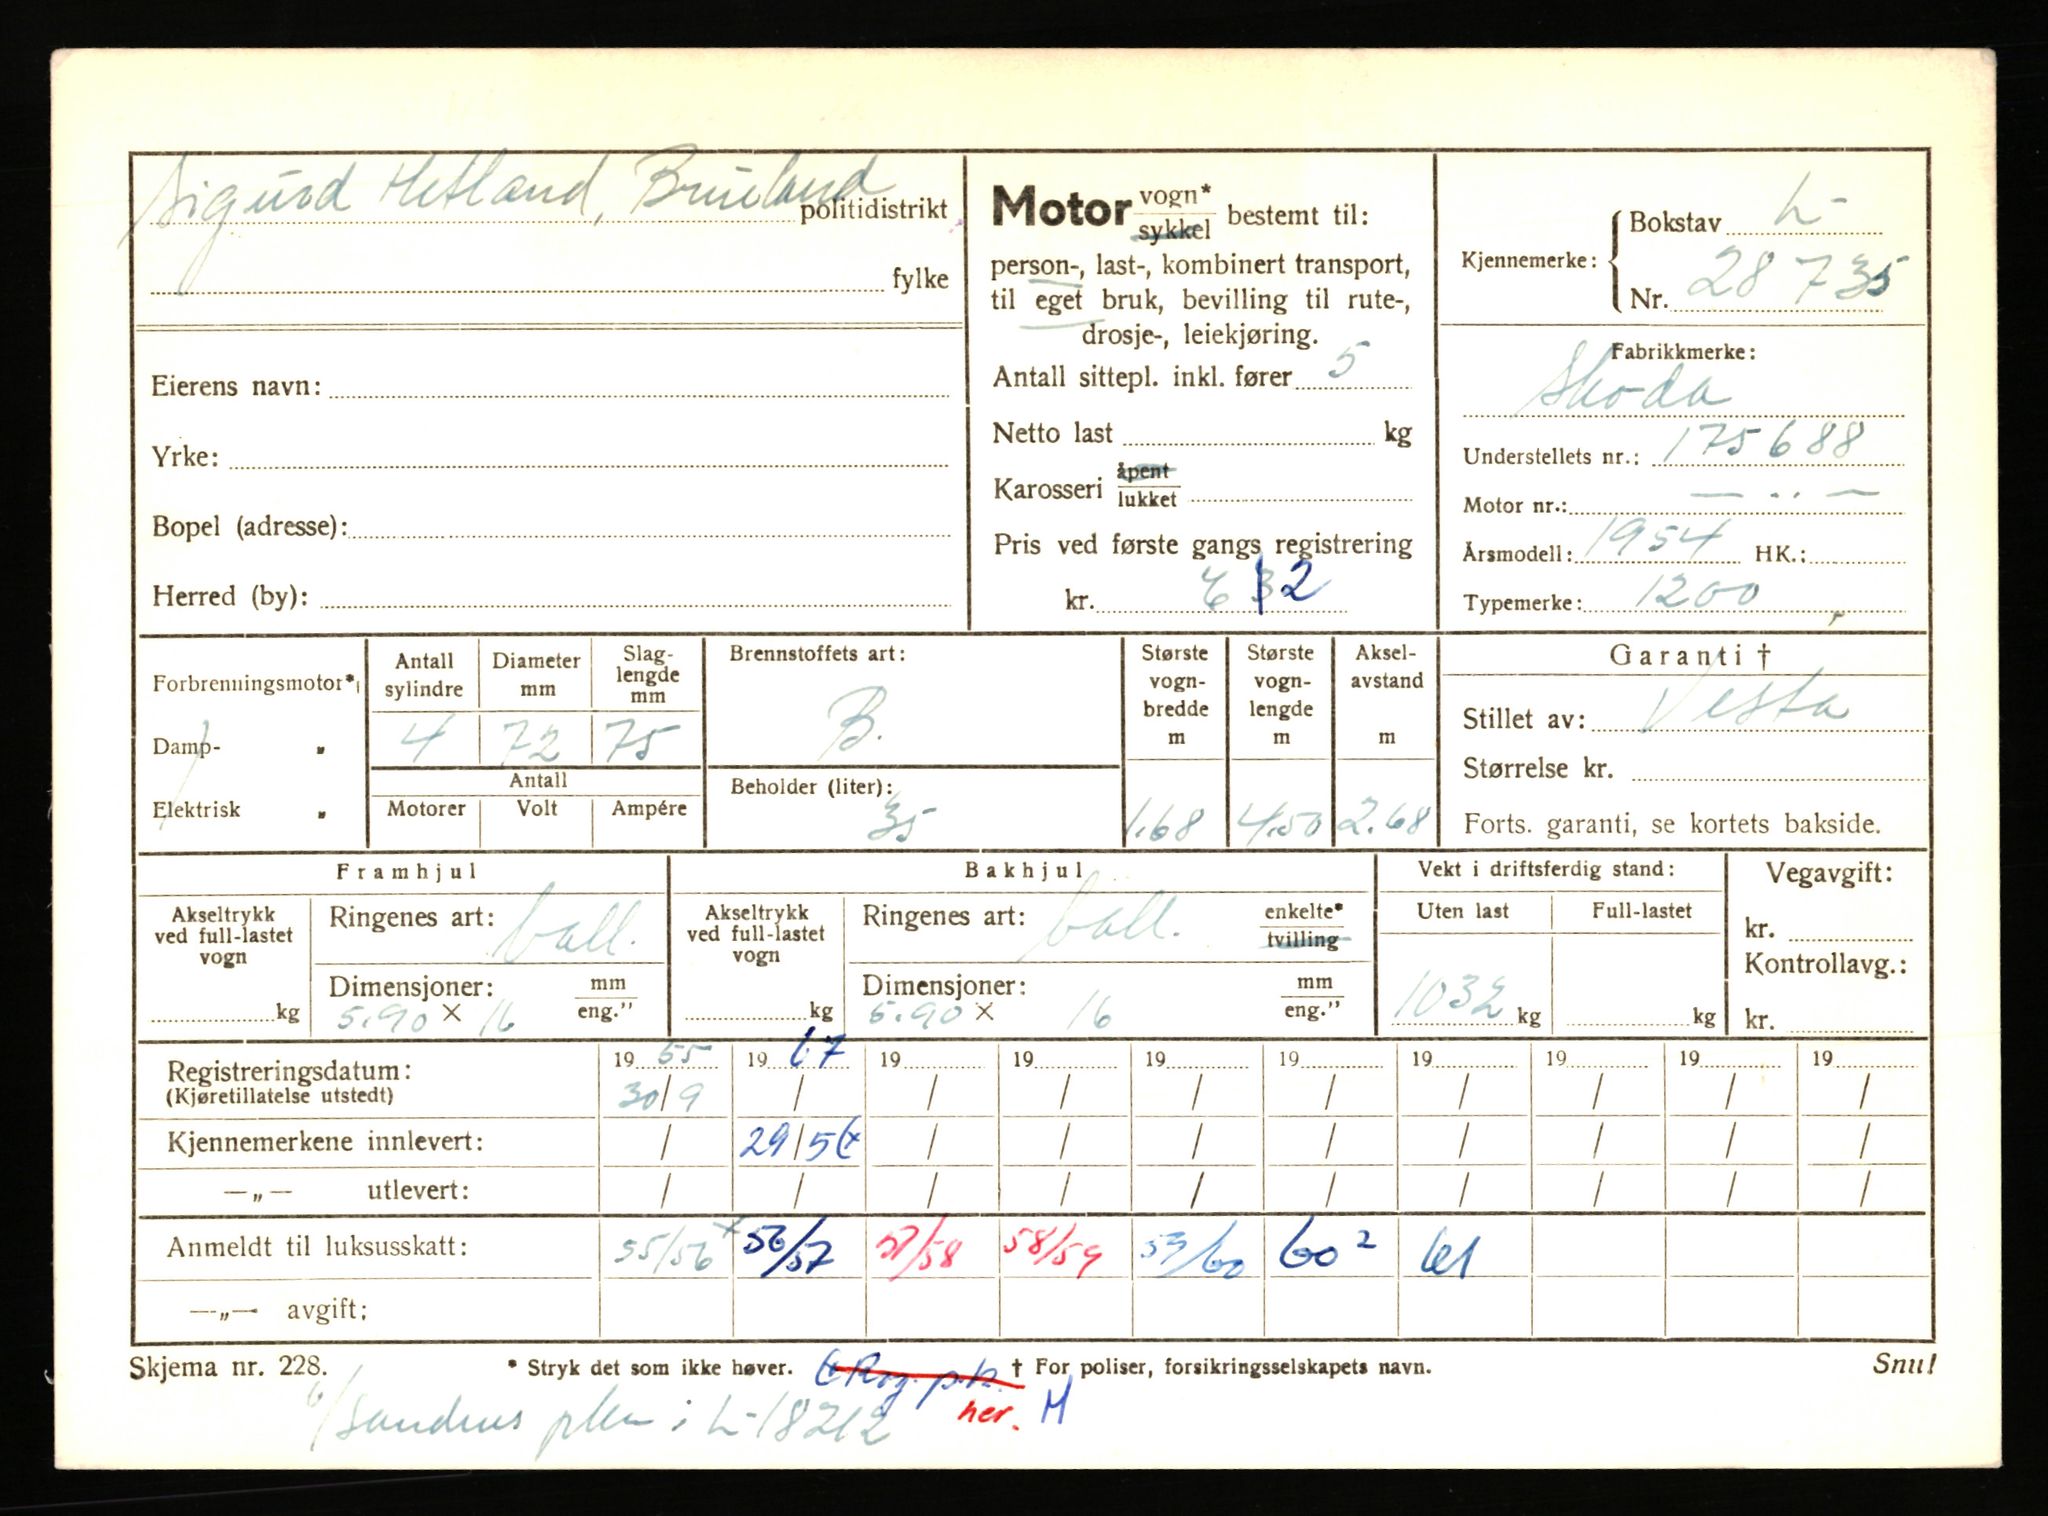 Sigurd Hetland, Brueland politidistrikt
fylke
Eierens navn:
Yrke:
Bopel (adresse):
Herred (by):
Motor vogn* / sykkel bestemt til:
person-, last-, kombinert transport,
til eget bruk, bevilling til rute-,
drosje-, leiekjøring.
Antall sittepl. inkl. fører 5
Netto last kg
Karosseri åpent / lukket
Pris ved første gangs registrering
kr.
Kjennemerke: Bokstav L-
Nr. 28735
Fabrikkmerke:
Skoda
Understellets nr.: 175688
Motor nr.: — .. —
Årsmodell: 1954 HK.:
Typemerke: 1200
Forbrenningsmotor*
Damp- „
Elektrisk „
Antall sylindre 4
Diameter mm 72
Slag-lengde mm 75
Antall
Motorer Volt Ampére
Brennstoffets art:
B.
Beholder (liter):
35
Største vogn-bredde m 1.68
Største vogn-lengde m 4.50
Aksel-avstand m 2.68
Garanti †
Stillet av: Vesta
Størrelse kr.
Forts. garanti, se kortets bakside.
Framhjul
Akseltrykk ved full-lastet vogn
kg
Ringenes art: ball.
Dimensjoner: mm / eng."
5.90 × 16
Bakhjul
Akseltrykk ved full-lastet vogn
kg
Ringenes art: ball. enkelte* / tvilling
Dimensjoner: mm / eng."
5.90 × 16
Vekt i driftsferdig stand:
Uten last Full-lastet
1032 kg kg
Vegavgift:
kr.
Kontrollavg.:
kr.
Registreringsdatum: 19 55 19 67 19 19 19 19 19 19 19 19
(Kjøretillatelse utstedt) 30/9 / / / / / / / / /
Kjennemerkene innlevert: / 29/5 / / / / / / / /
—„— utlevert: / / / / / / / / / /
Anmeldt til luksusskatt: 55/56 56/57 57/58 58/59 59/60 60² 61
—„— avgift:
Skjema nr. 228. * Stryk det som ikke høver. † For poliser, forsikringsselskapets navn. Snu!
Rog. p.k.
her. M
i L-18212